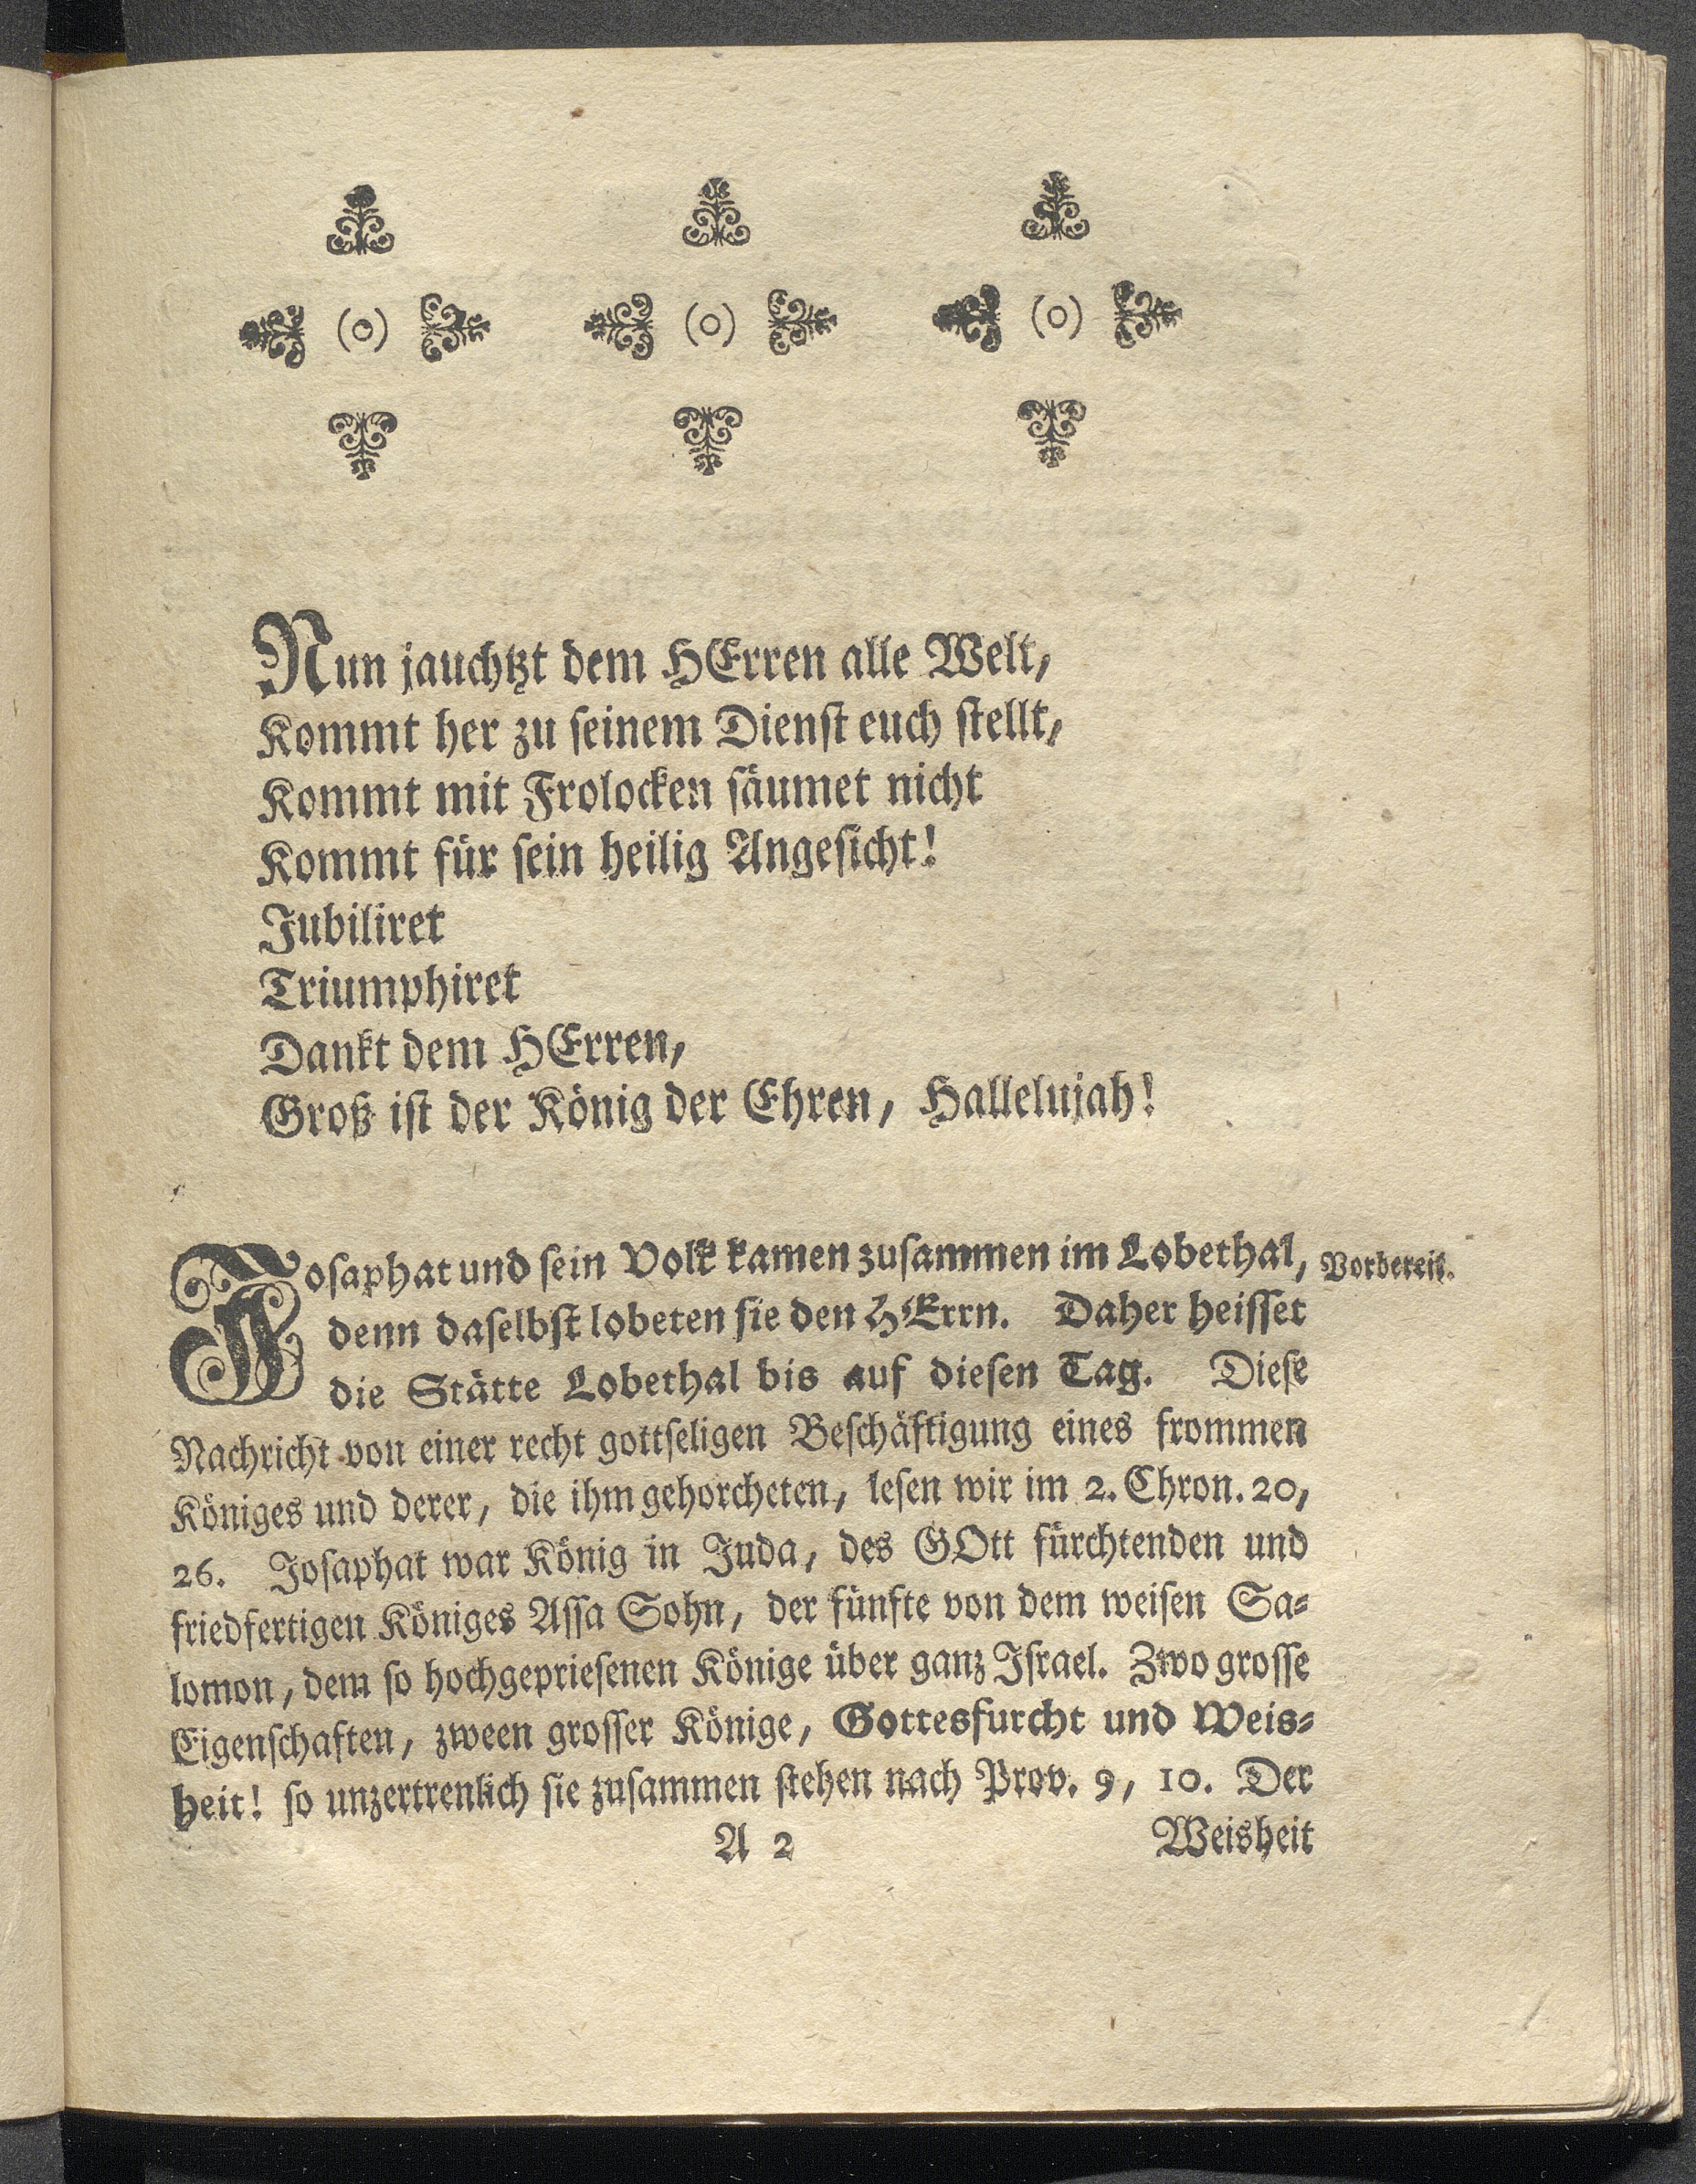 (o) (o) (o)
Nun jauchtzt dem HErren alle Welt,
Kommt her zu ſeinem Dienſt euch ſtellt,
Kommt mit Frolocken ſäumet nicht
Kommt für ſein heilig Angeſicht!
Jubiliret
Triumphiret
Dankt dem HErren,
Groß iſt der König der Ehren, Hallelujah!
Joſaphat und ſein Volk kamen zuſammen im Lobethal, Vorbereit.
denn daſelbſt lobeten ſie den HErrn. Daher heiſſet
die Stätte Lobethal bis auf dieſen Tag. Dieſe
Nachricht von einer recht gottſeligen Beſchäftigung eines frommen
Königes und derer, die ihm gehorcheten, leſen wir im 2. Chron. 20,
26. Joſaphat war König in Juda, des GOtt fürchtenden und
friedfertigen Königes Aſſa Sohn, der fünfte von dem weiſen Sa⸗
lomon, dem ſo hochgeprieſenen Könige über ganz Iſrael. Zwo groſſe
Eigenſchaften, zween groſſer Könige, Gottesfurcht und Weis⸗
heit! ſo unzertrenlich ſie zuſammen ſtehen nach Prov. 9, 10. Der
A 2 Weisheit